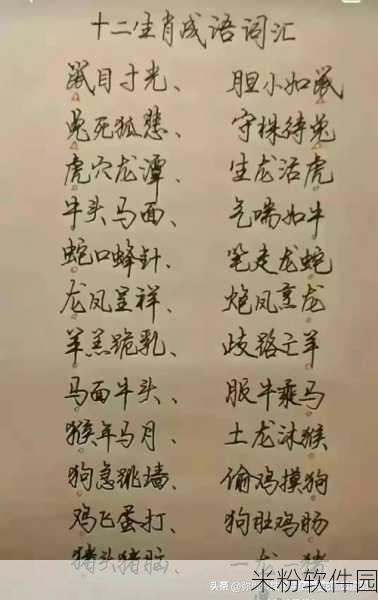 十二生肖成语词汇
鼠目寸光、 胆小如鼠
兔死狐悲、 守株待兔
虎穴龙潭、 生龙活虎
牛头马面、 气喘如牛
蛇口蜂針、 笔走龙蛇
龙凤呈祥、 炮凤烹龙
羊羔跪乳、 歧路亡羊
马面牛头、 服牛乘马
猴年马月、 土龙沐猴
狗急跳墙、 偷鸡摸狗
鸡飞蛋打、 狗肚鸡肠
猪头猪脑、 一龙一猪
头条
米粉软件园